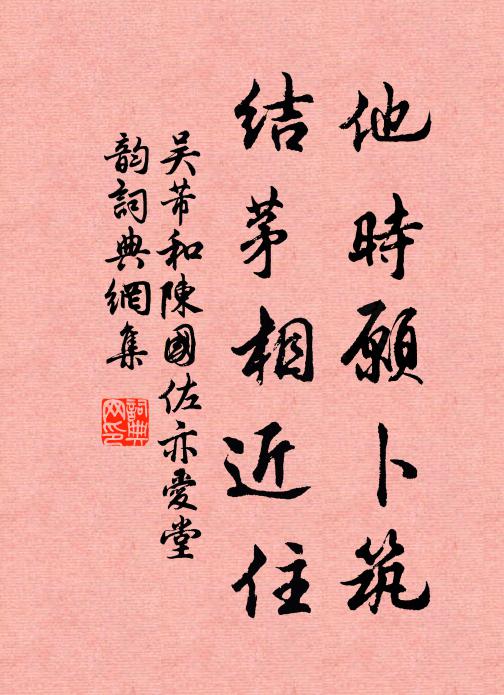 他時願卜筑
結茅相近住
吴芾和陳國佐亦愛堂
韵詞典網集
詞典网印